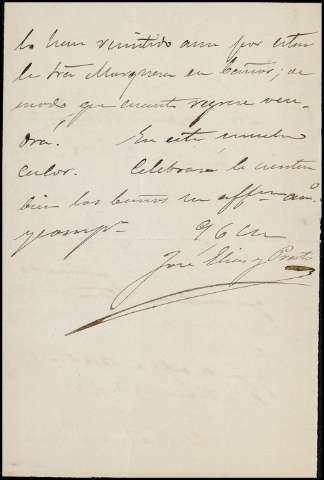 lo han remitido aun por estar
la Sra Marquesa en baños; de
modo que cuanto regrese ven-
drá. En esta mucho
calor. Celebrará le sienten
bien los baños su affmo am.º
y comp.º
José Elias y